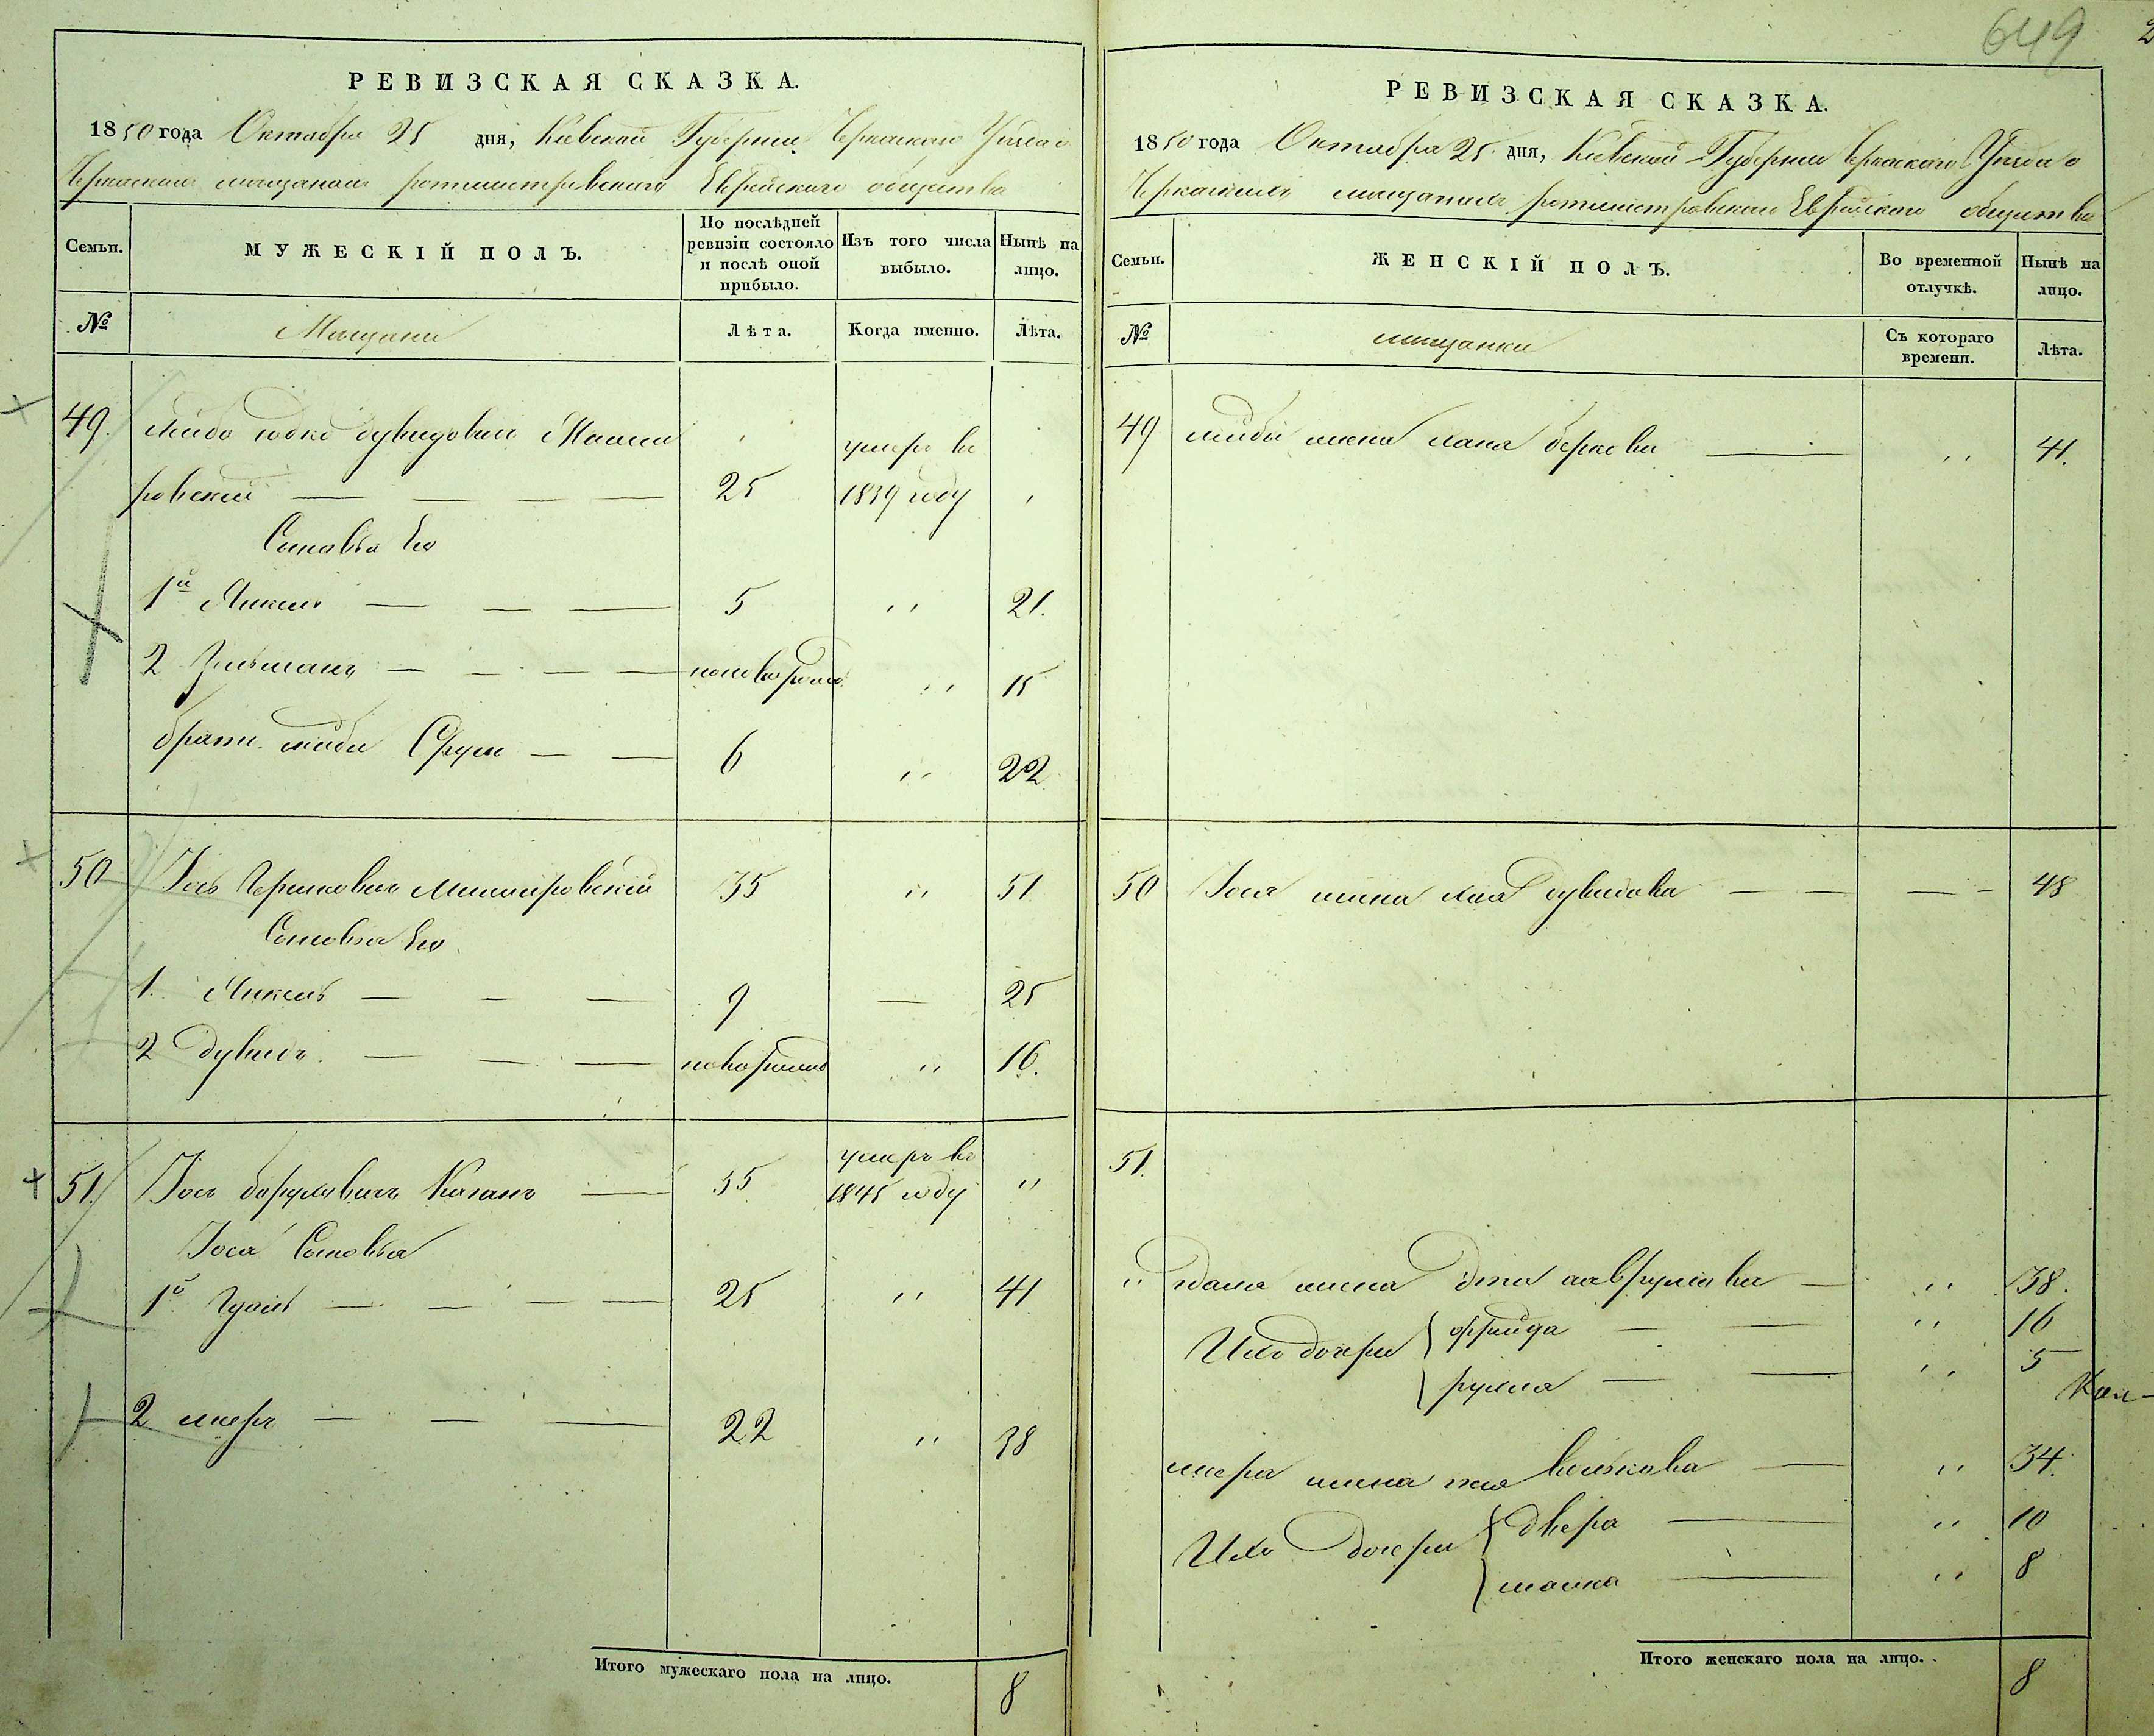 649
2
РЕВИЗСКАЯ СКАЗКА.
1850 года Октября 25 дня, Кіевской Губерніи Черкаскаго Уѣзда о
Черкаскихъ мещанахъ ротмистровскаго Еврейскаго общества
Семьи.
МУЖЕСКІЙ ПОЛЪ.
По послѣдней ревизіи состояло и послѣ оной прибыло.
Изъ того числа выбыло.
Нынѣ на лицо.
№
Мещани
Лѣта.
Когда именно.
Лѣта.
49. Лейба Юдко дувидовичъ
ровский 25 умеръ въ 1839 году
Сыновья Его
1й Янкель 5 " 21.
2 Зельманъ " 15
братъ лейби Сруль 6 " 22
50 Іось Гершковичъ Мошпировскій 35 " 51
Сыновья Его
1. Янкель 9 — 25
2 Дувидъ новорожд " 16.
51. Іось борухович Коганъ 55 умеръ въ 1845 году "
Іося Сыновья
1й 25 " 41
2 мееръ 22 " 38
Итого мужескаго пола на лицо. 8
РЕВИЗСКАЯ СКАЗКА.
1850 года Октября 25 дня, Кіевской Губерніи Черкаскаго Уѣзда о
Черкаскихъ мещанахъ ротмистровскаго Еврейскаго общества
Семьи.
ЖЕНСКІЙ ПОЛЪ.
Во временной отлучкѣ.
Нынѣ на лицо.
№
мещанки
Съ котораго времени.
Лѣта.
49 лейби жена хана беркова " 41.
50 Іося жена хая дувидова — 48
51.
" жена " 38.
Ихъ дочери { фрейда " 16
{ рухля " 5
меера жена волькова " 34.
Ихъ дочери { двера " 10
{ малка " 8
Итого женскаго пола на лицо. 8